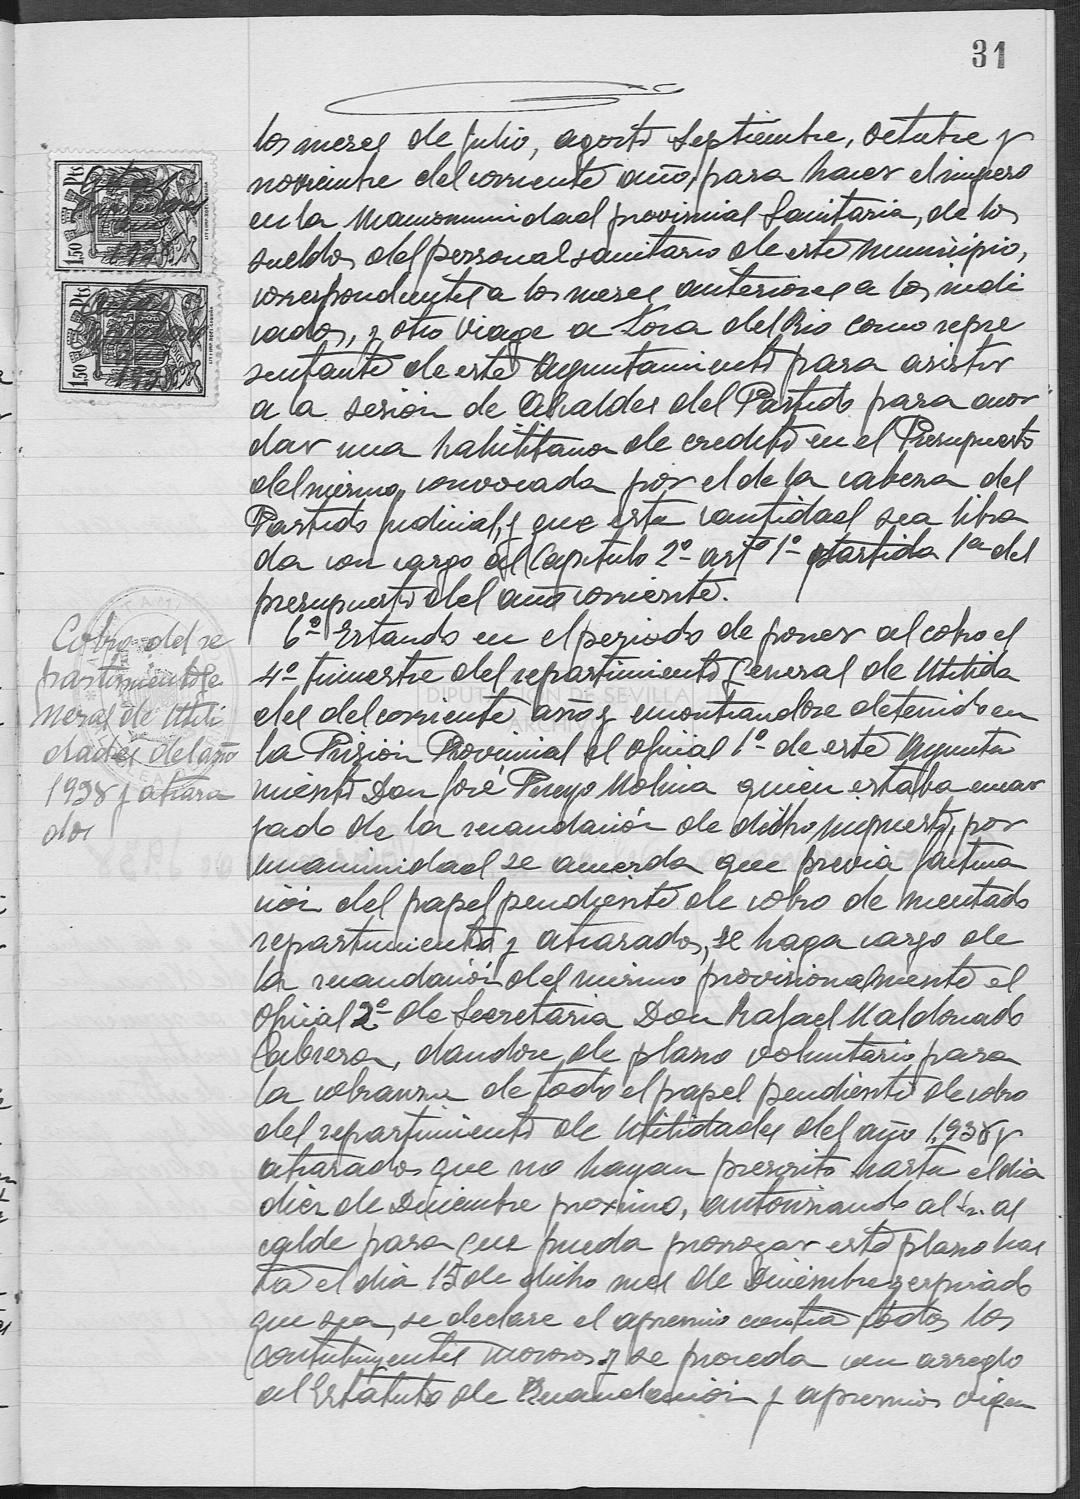 31
los meses de julio, agosto Septiembre, octubre y
noviembre del corriente año, para hacer el ingreso
en la Mancomunidad provincial Sanitaria, de los
sueldos del personal sanitario de este municipio,
correspondientes a los meses anteriores a los indi
cados, y otro viage a Lora del Rio como repre
sentante de este Ayuntamiento para asistir
a la sesion de Alcaldes del Partido para acor
dar una habilitacion de credito en el Presupuesto
del mismo, convocada por el de la cabeza del
Partido judicial, y que esta cantidad sea libra
da con cargo al Capitulo 2º artº 1º partida 1ª del
presupuesto del año corriente.
6º Estando en el periodo de poner al cobro el
4º trimestre del repartimiento General de Utilida
des del corriente año y encontrandose detenido en
la Prision Provincial el oficial 1º de este Ayunta
miento Don José Molina quien estaba encar
gado de la recaudación de dicho impuesto, por
unanimidad se acuerda que previa factura
ción del papel pendiente de cobro de mentado
repartimiento y atrasados, se haga cargo de
la recaudación del mismo provisionalmente el
Oficial 2º de Secretaria Don Rafael Maldonado
Cabrera, dandose de plazo voluntario para
la cobranza de todo el papel pendiente de cobro
del repartimiento de Utilidades del año 1.938 y
atrasados que no hayan prescrito hasta el dia
diez de Diciembre proximo, autorizando al Sr. al
calde para que pueda prorrogar este plazo has
ta el dia 15 de dicho mes de Diciembre y expirado
que sea, se declare el apremio contra todos los
contribuyentes morosos y se proceda con arreglo
al Estatuto de Recaudación y apremios vigen
Cobro del re
partimiento Ge
neral de Utili
dades del año
1938 y atrasa
dos
1,50 Pts
1938
1,50 Pts
1938
DIPUTACIÓN DE SEVILLA
ARCHIVO